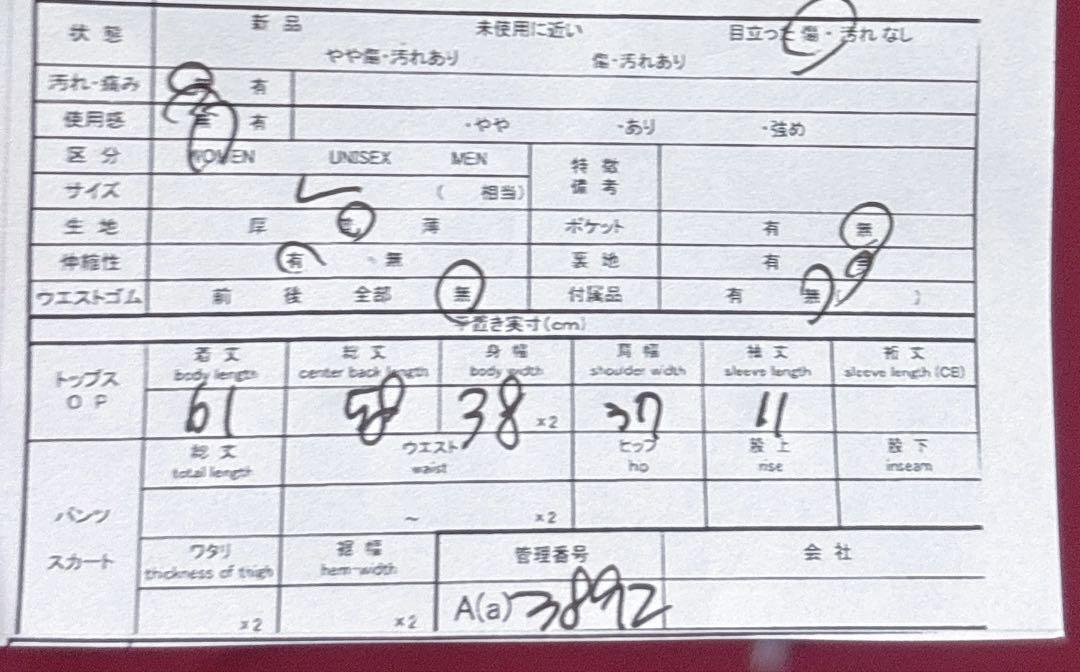 状態 新品 未使用に近い 目立った傷・汚れなし
やや傷・汚れあり 傷・汚れあり
汚れ・痛み 有
使用感 無 有 ・やや ・あり ・強め
区分 WOMEN UNISEX MEN 特徴
備考
サイズ L ( 相当)
生地 厚 薄 ポケット 有 無
伸縮性 有 ・ 無 裏地 有
ウエストゴム 前 後 全部 無 付属品 有 無( )
平置き実寸(cm)
トップス
OP
着丈 総丈 身幅 肩幅 袖丈 裄丈
body length center back length body width shoulder width sleeve length sleeve length (CB)
61 58 38 x2 37 11
パンツ
スカート
総丈 ウエスト ヒップ 股上 股下
total length waist hip rise inseam
~ x2
ワタリ 裾幅 管理番号 会社
thickness of thigh hem-width
x2 x2 A(a) 3892